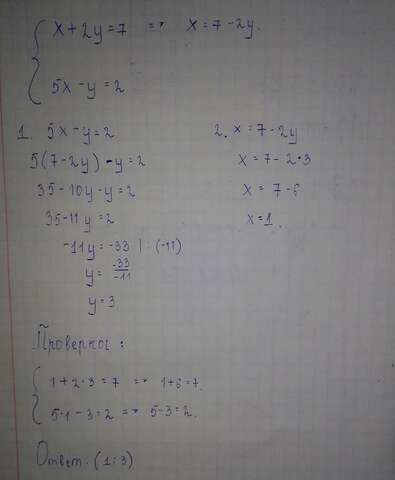 x+2y=7 => x=7-2y.
5x-y=2
1. 5x-y=2
5(7-2y)-y=2
35-10y-y=2
35-11y=2
-11y=-33 |:(-11)
y=-33/-11
y=3.
2. x=7-2y
x=7-2·3
x=7-6
x=1.
Проверка:
1+2·3=7 => 1+6=7.
5·1-3=2 => 5-3=2.
Ответ: (1;3)